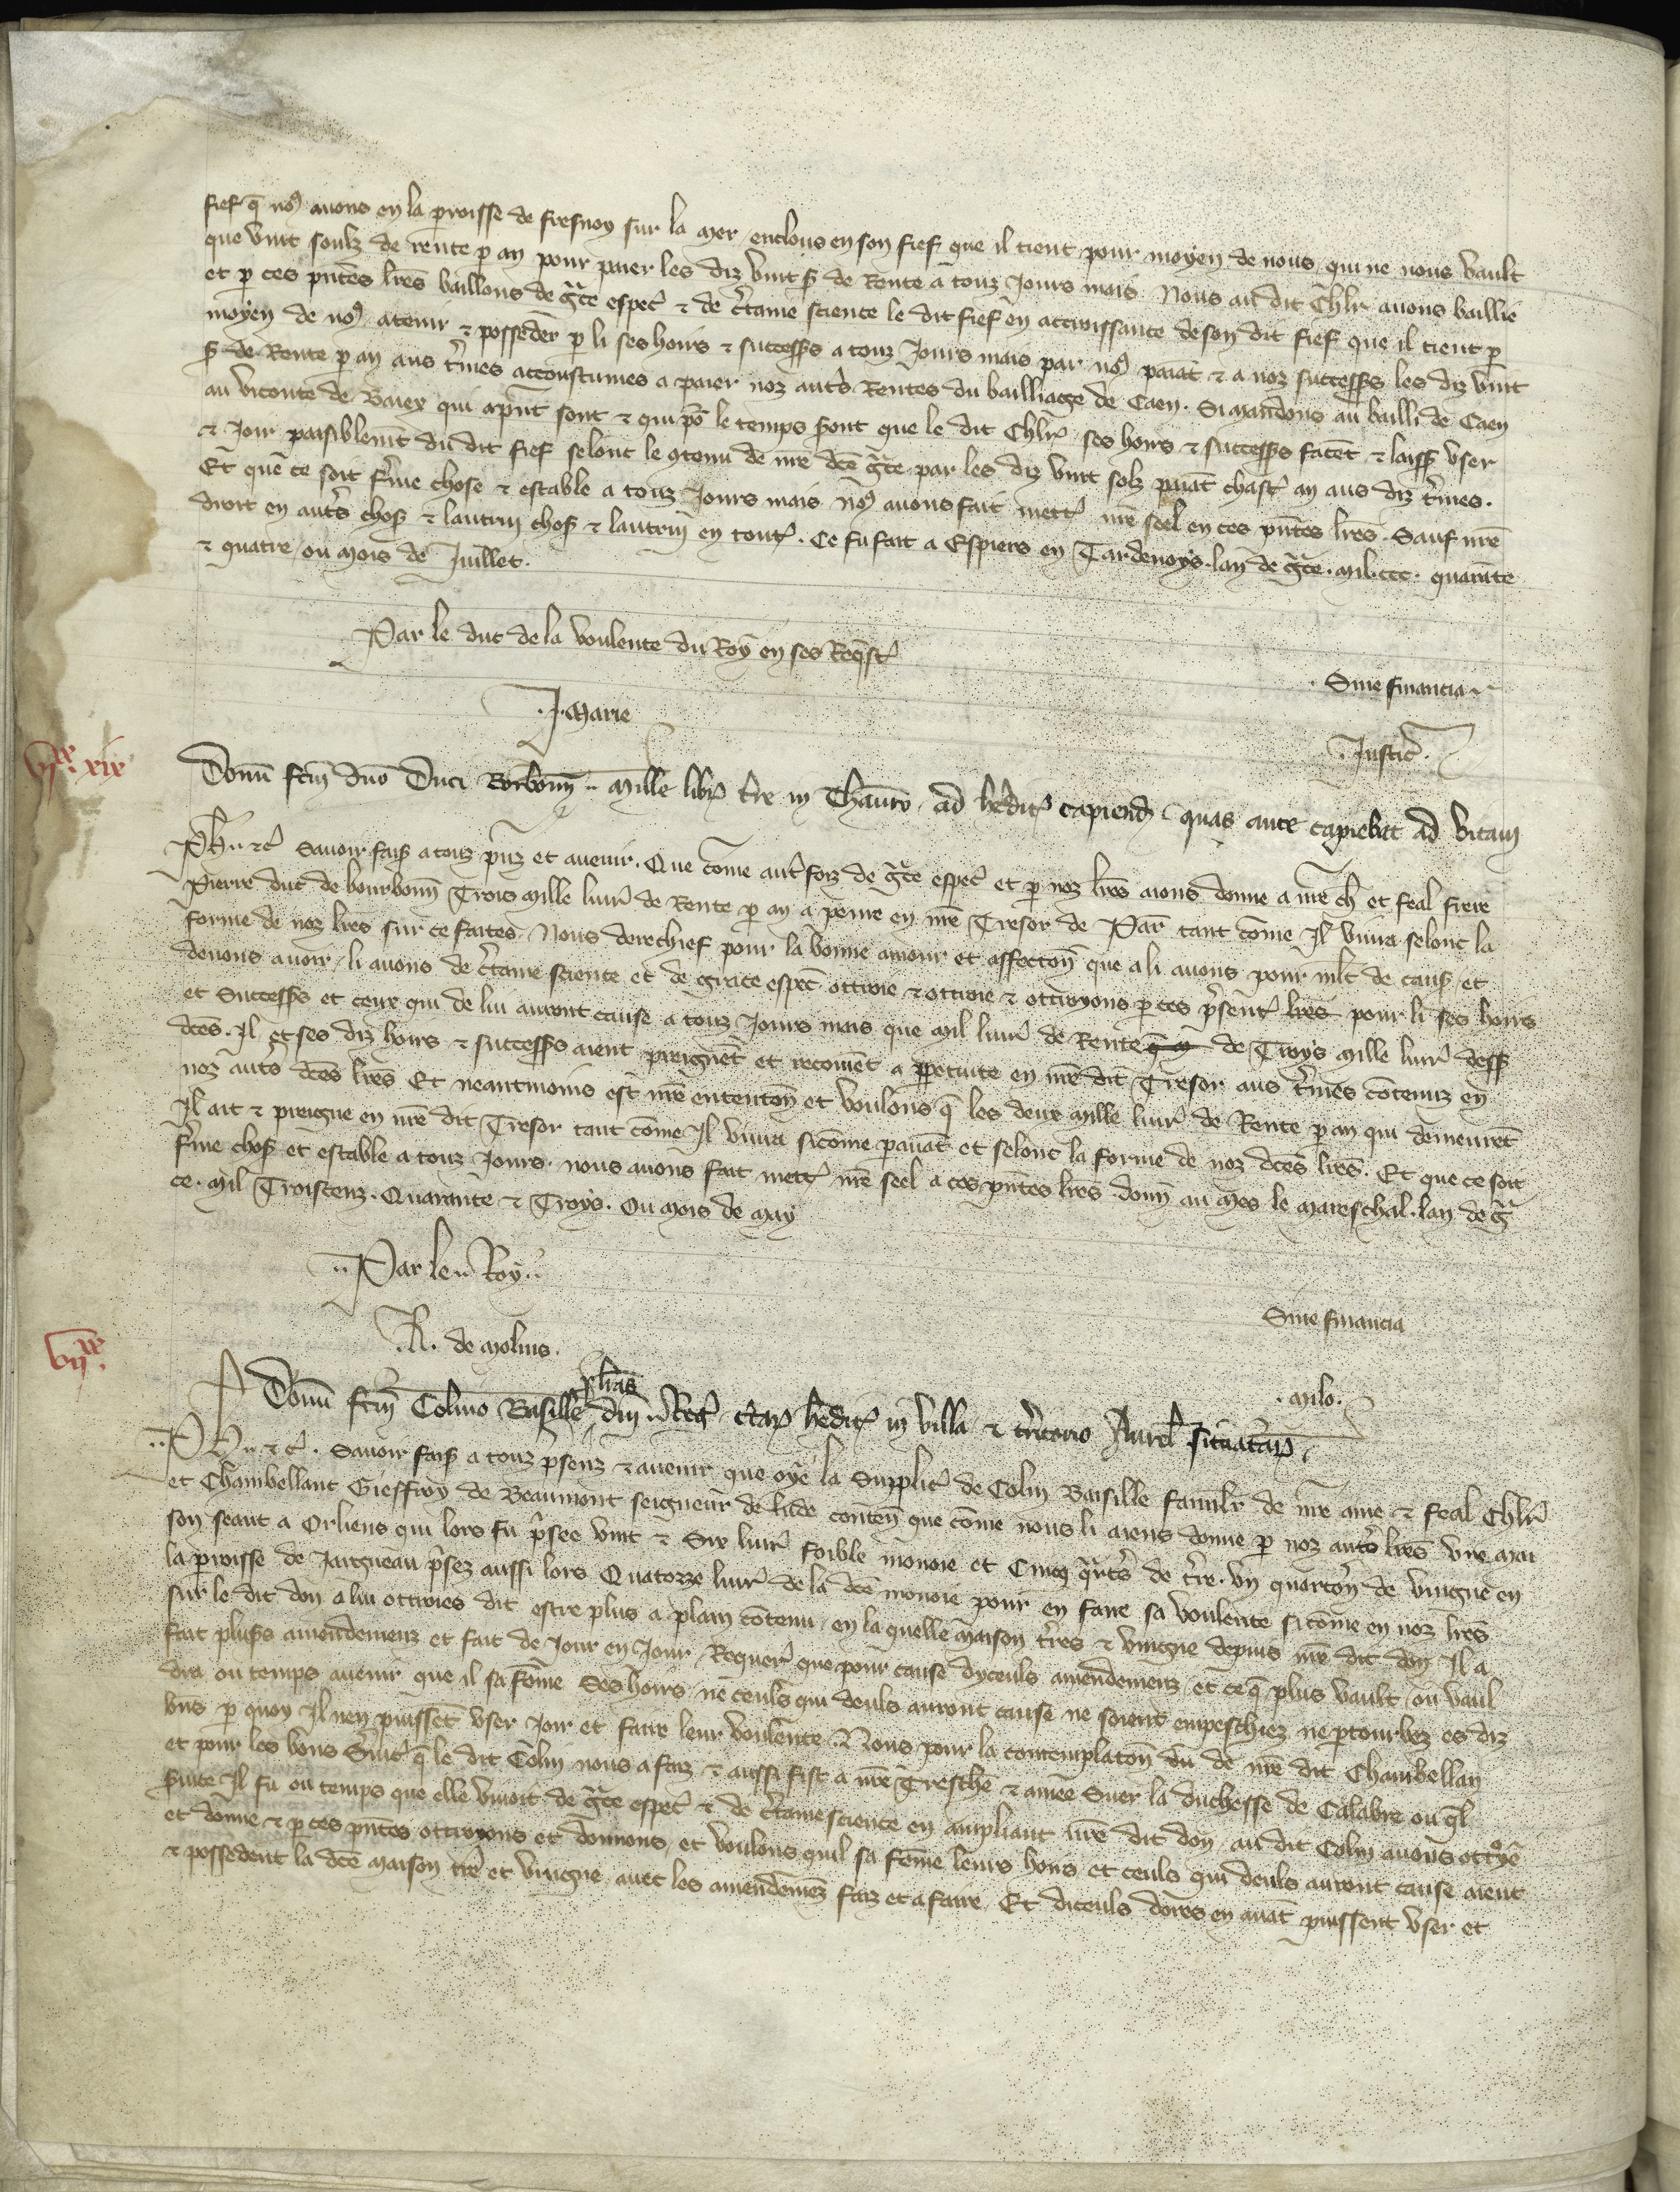 fief q̄ noꝰ avons en la p̲roisse de fresnoy sur la mer enclous en son fief que il tient pour moyen de nous qui ne nous vault
que vint soulz de rente p̲ an pour paier les diz vint s̃ de Rente a touz Jours mais Nous au dit chlr̄ avons baillié
et p̲ ces pñtes lr̃es baillons de gr̃ce esp̲ec̃ ⁊ de c̃taine science le dit fief en accroissance de son dit fief que il tient p̲
moyen de noꝰ a tenir ⁊ posseder p̲ li ses hoirs ⁊ success̃s a touz Jours mais par noꝰ paiāt ⁊ a noz success̃s les diz vint
s̃ de Rente p̲ an aus t̃mes accoustumes a paier noz aut̃s Rentes du bailliage de Caen. Si mandons au bailli de Caen
au viconte de Baiex qui ap̃nt sont ⁊ qui po᷑ le temps s̃ont que le dit Chlr̃ ses hoirs ⁊ success̃s facēt ⁊ laiss̃ user
⁊ joir paisiblem̃t du dit fief selonc le ꝯtenu de nr̃e dc̃e gr̃ce par les diz vint solz paiāt chasc̃ an aus diz t̃mes.
Et que ce soit f̃me chose ⁊ estable a touz Jours mais noꝰ avons fait mettr̃ nr̃e seel en ces pñtes lr̃es. Sauf nr̃e
droit en aut̃s chos̃ ⁊ lautrui chos̃ ⁊ lautrui en tout̃. Ce fu fait a Espiers en Tardenoys lan de gr̃ce. mil. ccc. quarāte
⁊ quatre ou mois de Juillet.
Par le duc de la voulente du Roy en ses Req̃st̃
Sine financia
J. Marie
Justic̃.
vijˣˣ xix
Donū fc̃m dño Duci Borboñ mille libr̃ t̃re in Thauro ad hedit̃ capiend̃ quas ante capiebat ad vitam
Ph̃ ⁊c̃ Savoir fais̃ a touz p̃nz et avenir. Que com̃e aut̃foiz de gr̃ce esp̲ec̃ et p̲ noz lr̃es aions donne a nr̃e ch̃ et feal frere
Pierre duc de bourboñ Trois mille livr̃ de Rente p̲ an a penre en nr̃e Tresor de Par̃ tant com̃e Il vivra selonc la
forme de noz lr̃es sur ce faites. Nous derechief pour la bonne amour et affeccoñ que a li avons pour ml̃t de caus̃ et
devons avoir li avons de c̃taine science et de grace esp̲ec̃ ottroie ⁊ ottroie ⁊ ottroyons p̲ ces p̃sent̃ lr̃es pour li ses hoirs
et Success̃s et ceux qui de lui auront cause a touz Jours mais que mil livr̃ de Rente de Troys mille livr̃ dess̃
dc̃es. Il et ses diz hoirs ⁊ success̃s aient preignēt et recoivēt a p̲petuite en nr̃e dit Tresor aus t̃mes cōtenuz en
noz aut̃s dc̃es lr̃es Et neantmoins est nr̃e entencoñ et voulons q̄ les deux mille livr̃ de Rente p̲ an qui demeurēt
Il ait ⁊ preigne en nr̃e dit Tresor tant com̃e Il vivra sicom̃e p̲avāt et selonc la forme de noz dc̃es lr̃es. Et que ce soit
f̃me chos̃ et estable a touz Jours. nous avons fait mettr̃ nr̃e seel a ces pñtes lr̃es. doñ au mes le mareschal. lan de gr̃
ce. mil Troiscenz. Quarante ⁊ Troys. Ou mois de may
Par le Roy
Sine financia
R. de Molins.
vijˣˣ.
. milo.
Donū fc̃m Colino Basille p̲ lr̃as dñi Reg̃ c̃tar̃ hedit̃ in villa ⁊ t̃ritorio Aurel̃ situatar̃
Ph̃ ⁊c̃. Savoir fais̃ a touz p̃senz ⁊ avenir que oye la Supplic̃ de Colin Baisille famil̃r de nr̃e ame ⁊ feal Chlr̃
et Chambellanc Gieffroy de Beaumont seigneur de lude conteñ que com̃e nous li aiens donne p̲ noz aut̃s lr̃es une mai
son seant a Orliens qui lors fu p̃see vint ⁊ Six livr̃ foible monoie et Cinq q̃rt̃s de t̃re. un quarto᷑n de vingne en
la p̲roisse de Jargueau p̃sez aussi lors Quatorze livr̃ de la dc̃e monoie pour en faire sa voulente sicom̃e en noz lr̃es
sur le dit don a lui ottroies dit estre plus a plain cōtenu en la quelle maison t̃res ⁊ vingne depuis nr̃e dit don Il a
fait plus̃s amendemenz et fait de Jour en Jour Requer̃ que pour cause dyceuls amendemenz et ce q̄ plus vault ou vaul
dra ou temps avenir que il sa fem̃e ses hoirs ne ceuls qui deuls auront cause ne soient empeschiez ne p̲tourbez es diz
biens p̲ quoy Il nen puissēt user Joir et faire leur voulente. Nous pour la contemplacoñ du de nr̃e dit Chambellan
et pour les bons S̃vic̃ q̄ le dit Colin nous a faiz ⁊ aussi fist a nr̃e Tresche ⁊ amee Suer la duchesse de Calabre ou q̃l
s̃vice Il fu ou temps que elle vivoit de gr̃ce esp̲ec̃ ⁊ de c̃taine science en ampliant nr̃e dit don au dit Colin avons ottroye
et donne ⁊ p̲ ces pñtes ottroyons et donnons et voulons quil sa fem̃e leurs hoirs et ceuls qui deuls auront cause aient
⁊ possedent la dc̃e maison t̃re et vingne avec les amendemēz faiz et a faire. Et diceuls dores en avāt puissent user et